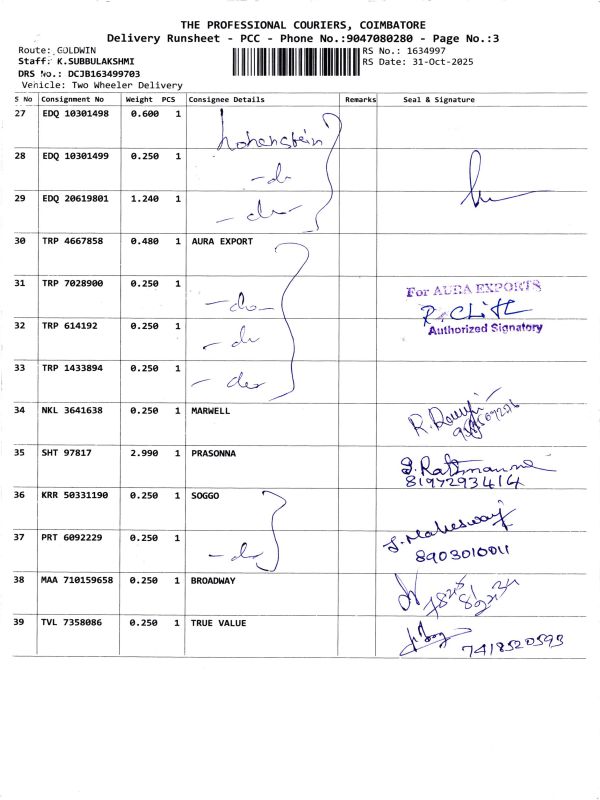 THE PROFESSIONAL COURIERS, COIMBATORE
Delivery Runsheet - PCC - Phone No.:9047080280 - Page No.:3
Route: GOLDWIN
RS No.: 1634997
Staff: K.SUBBULAKSHMI
RS Date: 31-Oct-2025
DRS No.: DCJB163499703
Vehicle: Two Wheeler Delivery
S No Consignment No Weight PCS Consignee Details Remarks Seal & Signature
27 EDQ 10301498 0.600 1 hohenstein
28 EDQ 10301499 0.250 1 -do
29 EDQ 20619801 1.240 1 -do-
30 TRP 4667858 0.480 1 AURA EXPORT
31 TRP 7028900 0.250 1 -do-
For AURA EXPORTS
32 TRP 614192 0.250 1 -do
Authorized Signatory
33 TRP 1433894 0.250 1 -do-
34 NKL 3641638 0.250 1 MARWELL
35 SHT 97817 2.990 1 PRASONNA
8197293414
36 KRR 50331190 0.250 1 SOGGO
37 PRT 6092229 0.250 1 -do-
8903010011
38 MAA 710159658 0.250 1 BROADWAY
39 TVL 7358086 0.250 1 TRUE VALUE
7418520593